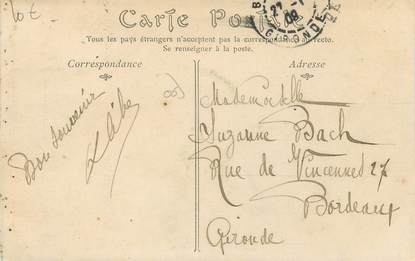 10 €
Carte Postale
27 -
09
GIRONDE
Tous les pays étrangers n'acceptent pas la correspondance au recto.
Se renseigner à la poste.
Correspondance
Adresse
Bon souvenir
Mademoiselle
Suzanne Bach
Rue de Vincennes 27
Bordeaux
Gironde